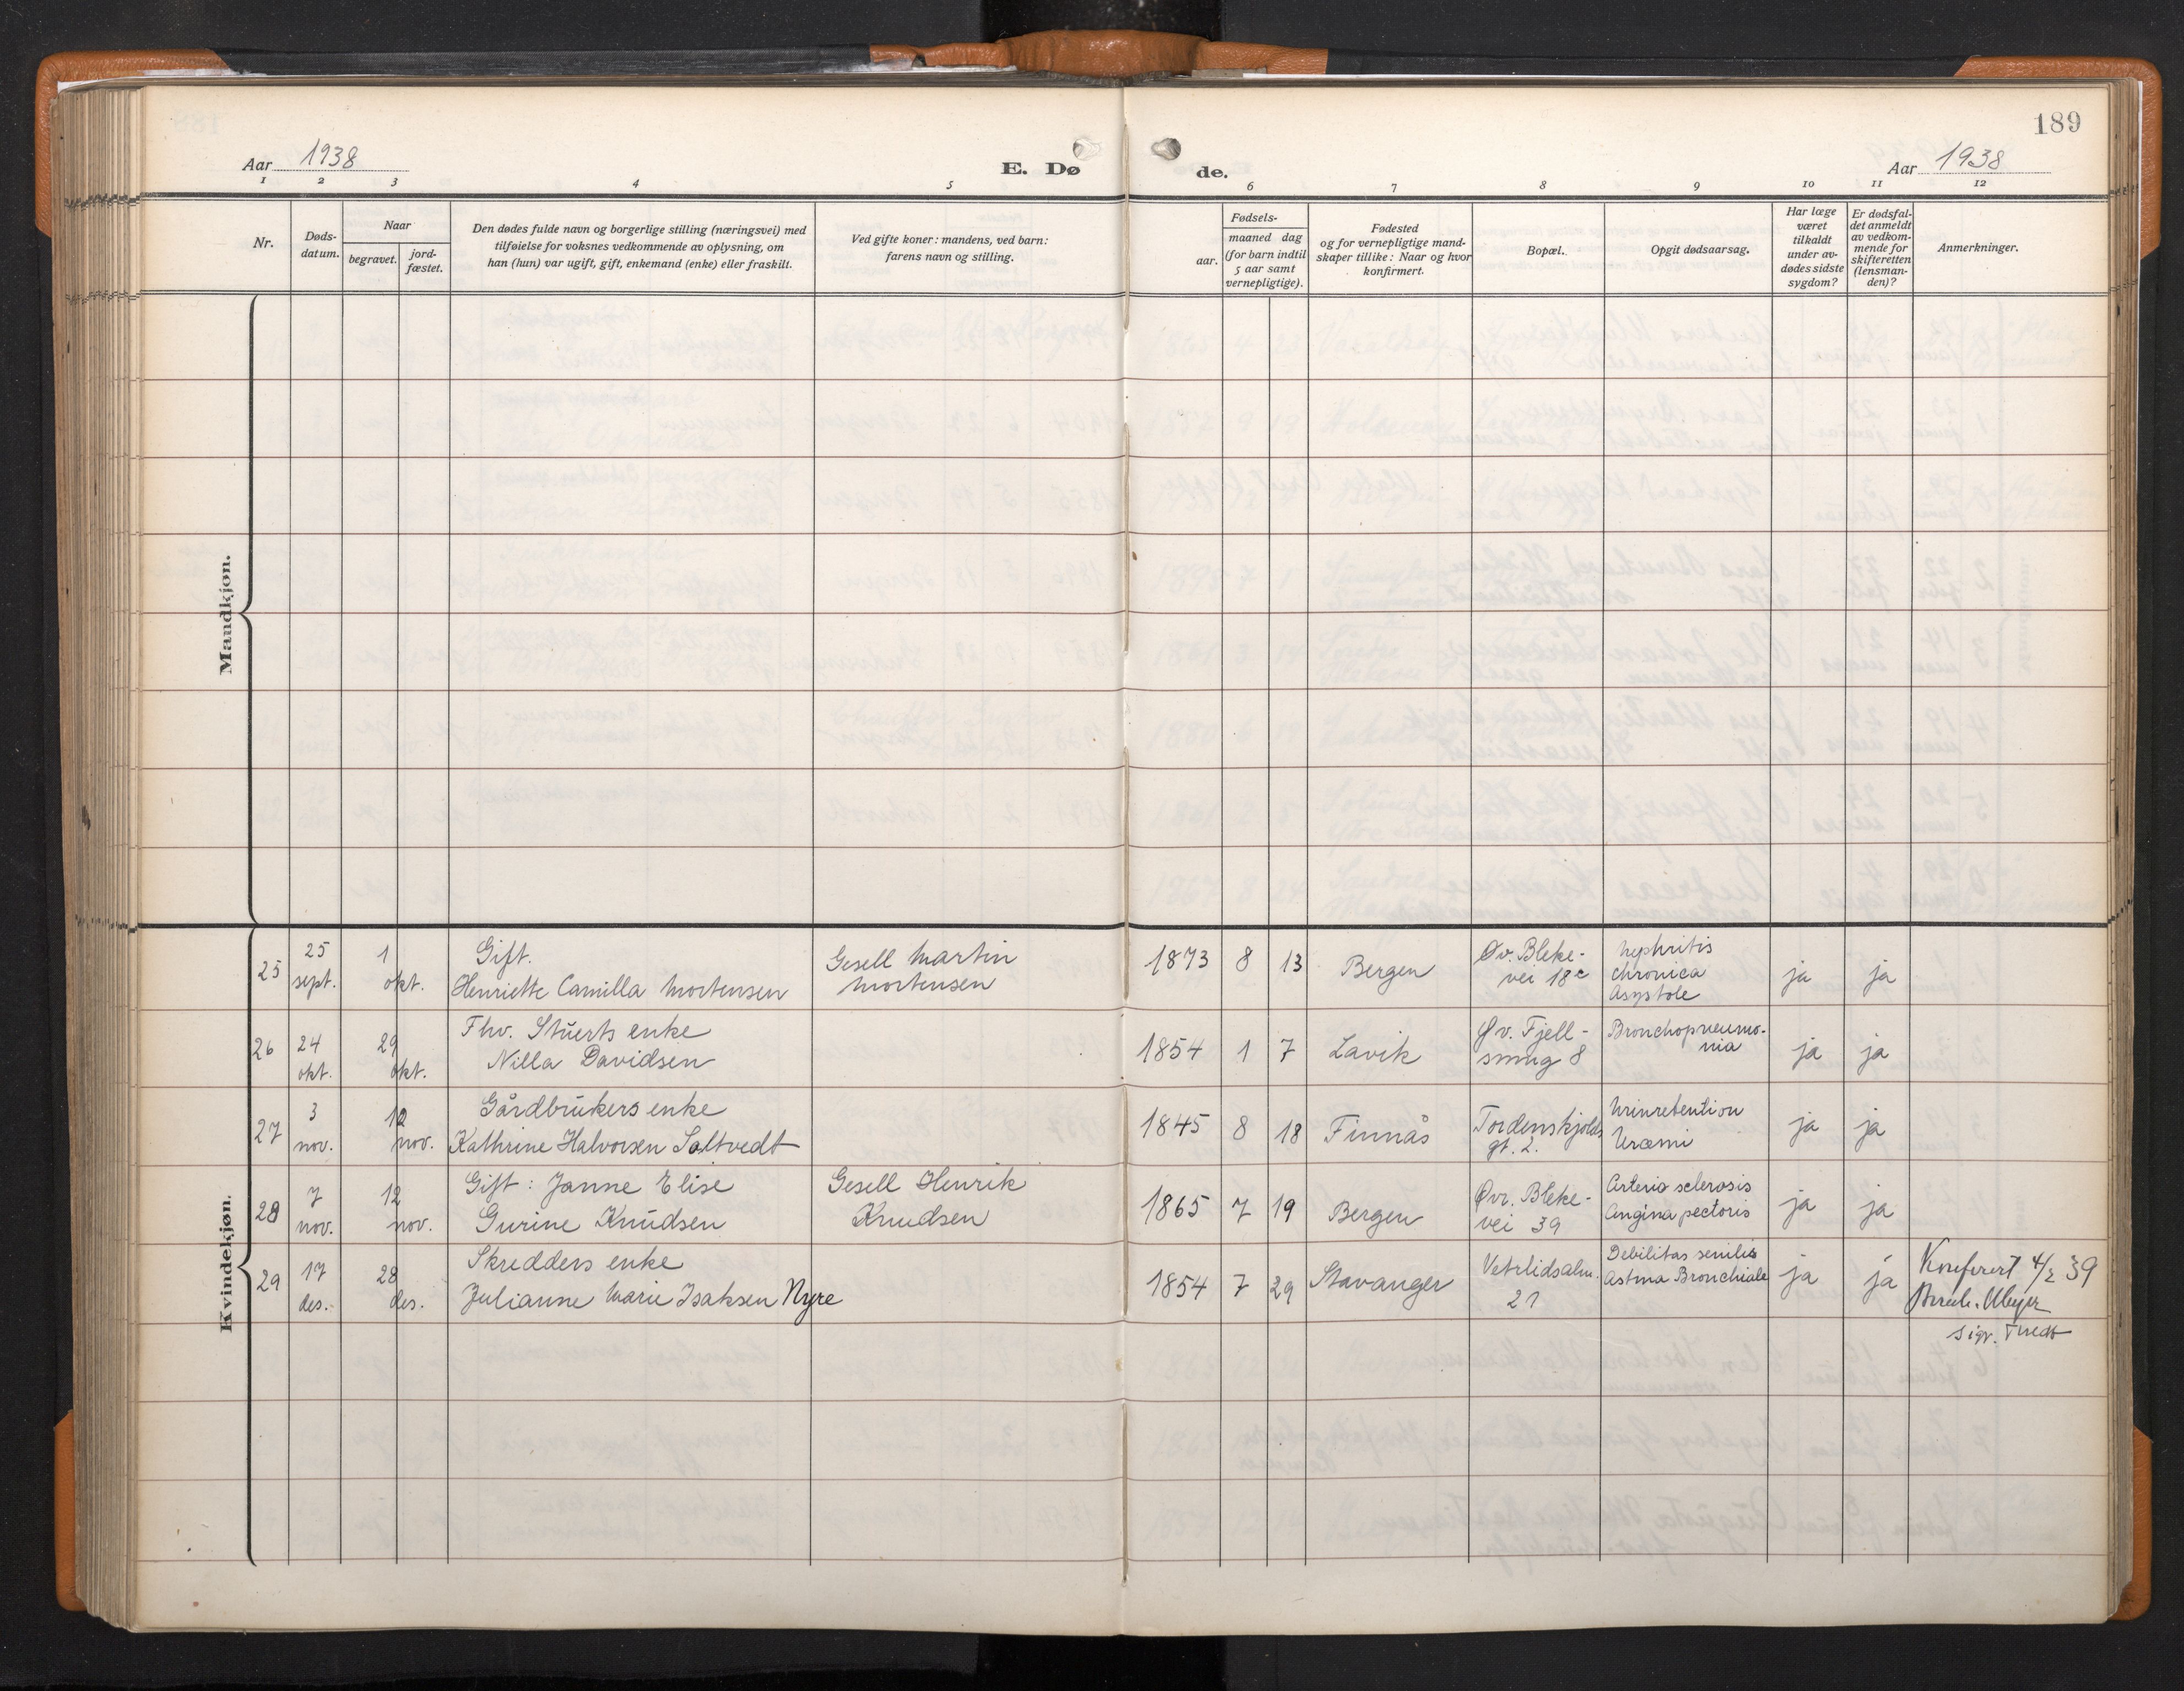 189
Aar 1938
E. Dø de.
Aar 1938
1 2 3 4 5 6 7 8 9 10 11 12
Nr.
Døds-
datum.
Naar
begravet.
jord-
fæstet.
Den dødes fulde navn og borgerlige stilling (næringsvei) med
tilføielse for voksnes vedkommende av oplysning, om
han (hun) var ugift, gift, enkemand (enke) eller fraskilt.
Ved gifte koner: mandens, ved barn:
farens navn og stilling.
Fødsels-
aar.
maaned dag
(for barn indtil
5 aar samt
vernepligtige).
Fødested
og for vernepligtige mand-
skaper tillike: Naar og hvor
konfirmert.
Bopæl.
Opgit dødsaarsag.
Har læge
været
tilkaldt
under av-
dødes sidste
sygdom?
Er dødsfal-
det anmeldt
av vedkom-
mende for
skifteretten
(lensman-
den)?
Anmerkninger.
Mandkjøn.
Kvindekjøn.
25
25
sept.
1
okt.
Gift.
Henriette Camilla Mortensen
Gesell Martin
Mortensen
1873 8 13
Bergen
Øv. Bleke-
vei 18c
Nephritis
chronica
Asystole
ja ja
26
24
okt.
29
okt.
Fhv. Stuerts enke
Nilla Davidsen
1854 1 7
Lavik
Øv. Fjell-
smug 8
Bronchopneumo-
nia
ja ja
27
3
nov.
12
nov.
Gårdbrukers enke
Kathrine Halvorsen Saltvedt
1845 8 18
Finnås
Tordenskjolds
gt. 2.
Urinretention
Uræmi
ja ja
28
7
nov.
12
nov.
Gift: Janne Elise
Gurine Knudsen
Gesell Henrik
Knudsen
1865 7 19
Bergen
Øvr. Bleke-
vei 39
Arterio sclerosis
Angina pectoris
ja ja
29
17
des.
28
des.
Skredders enke
Julianne Marie Isaksen Nyre
1854 7 29
Stavanger
Vetrlidsalm.
21
Debilitas senilis
Astma Bronchiale
ja ja
Konferert 4/2 39